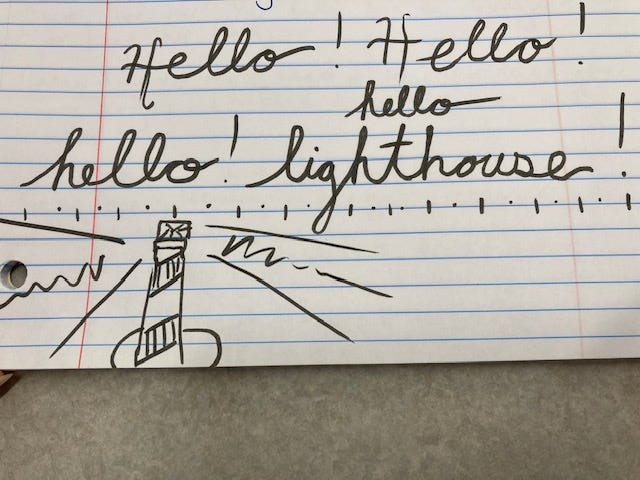 Hello! Hello!
hello
hello! lighthouse!